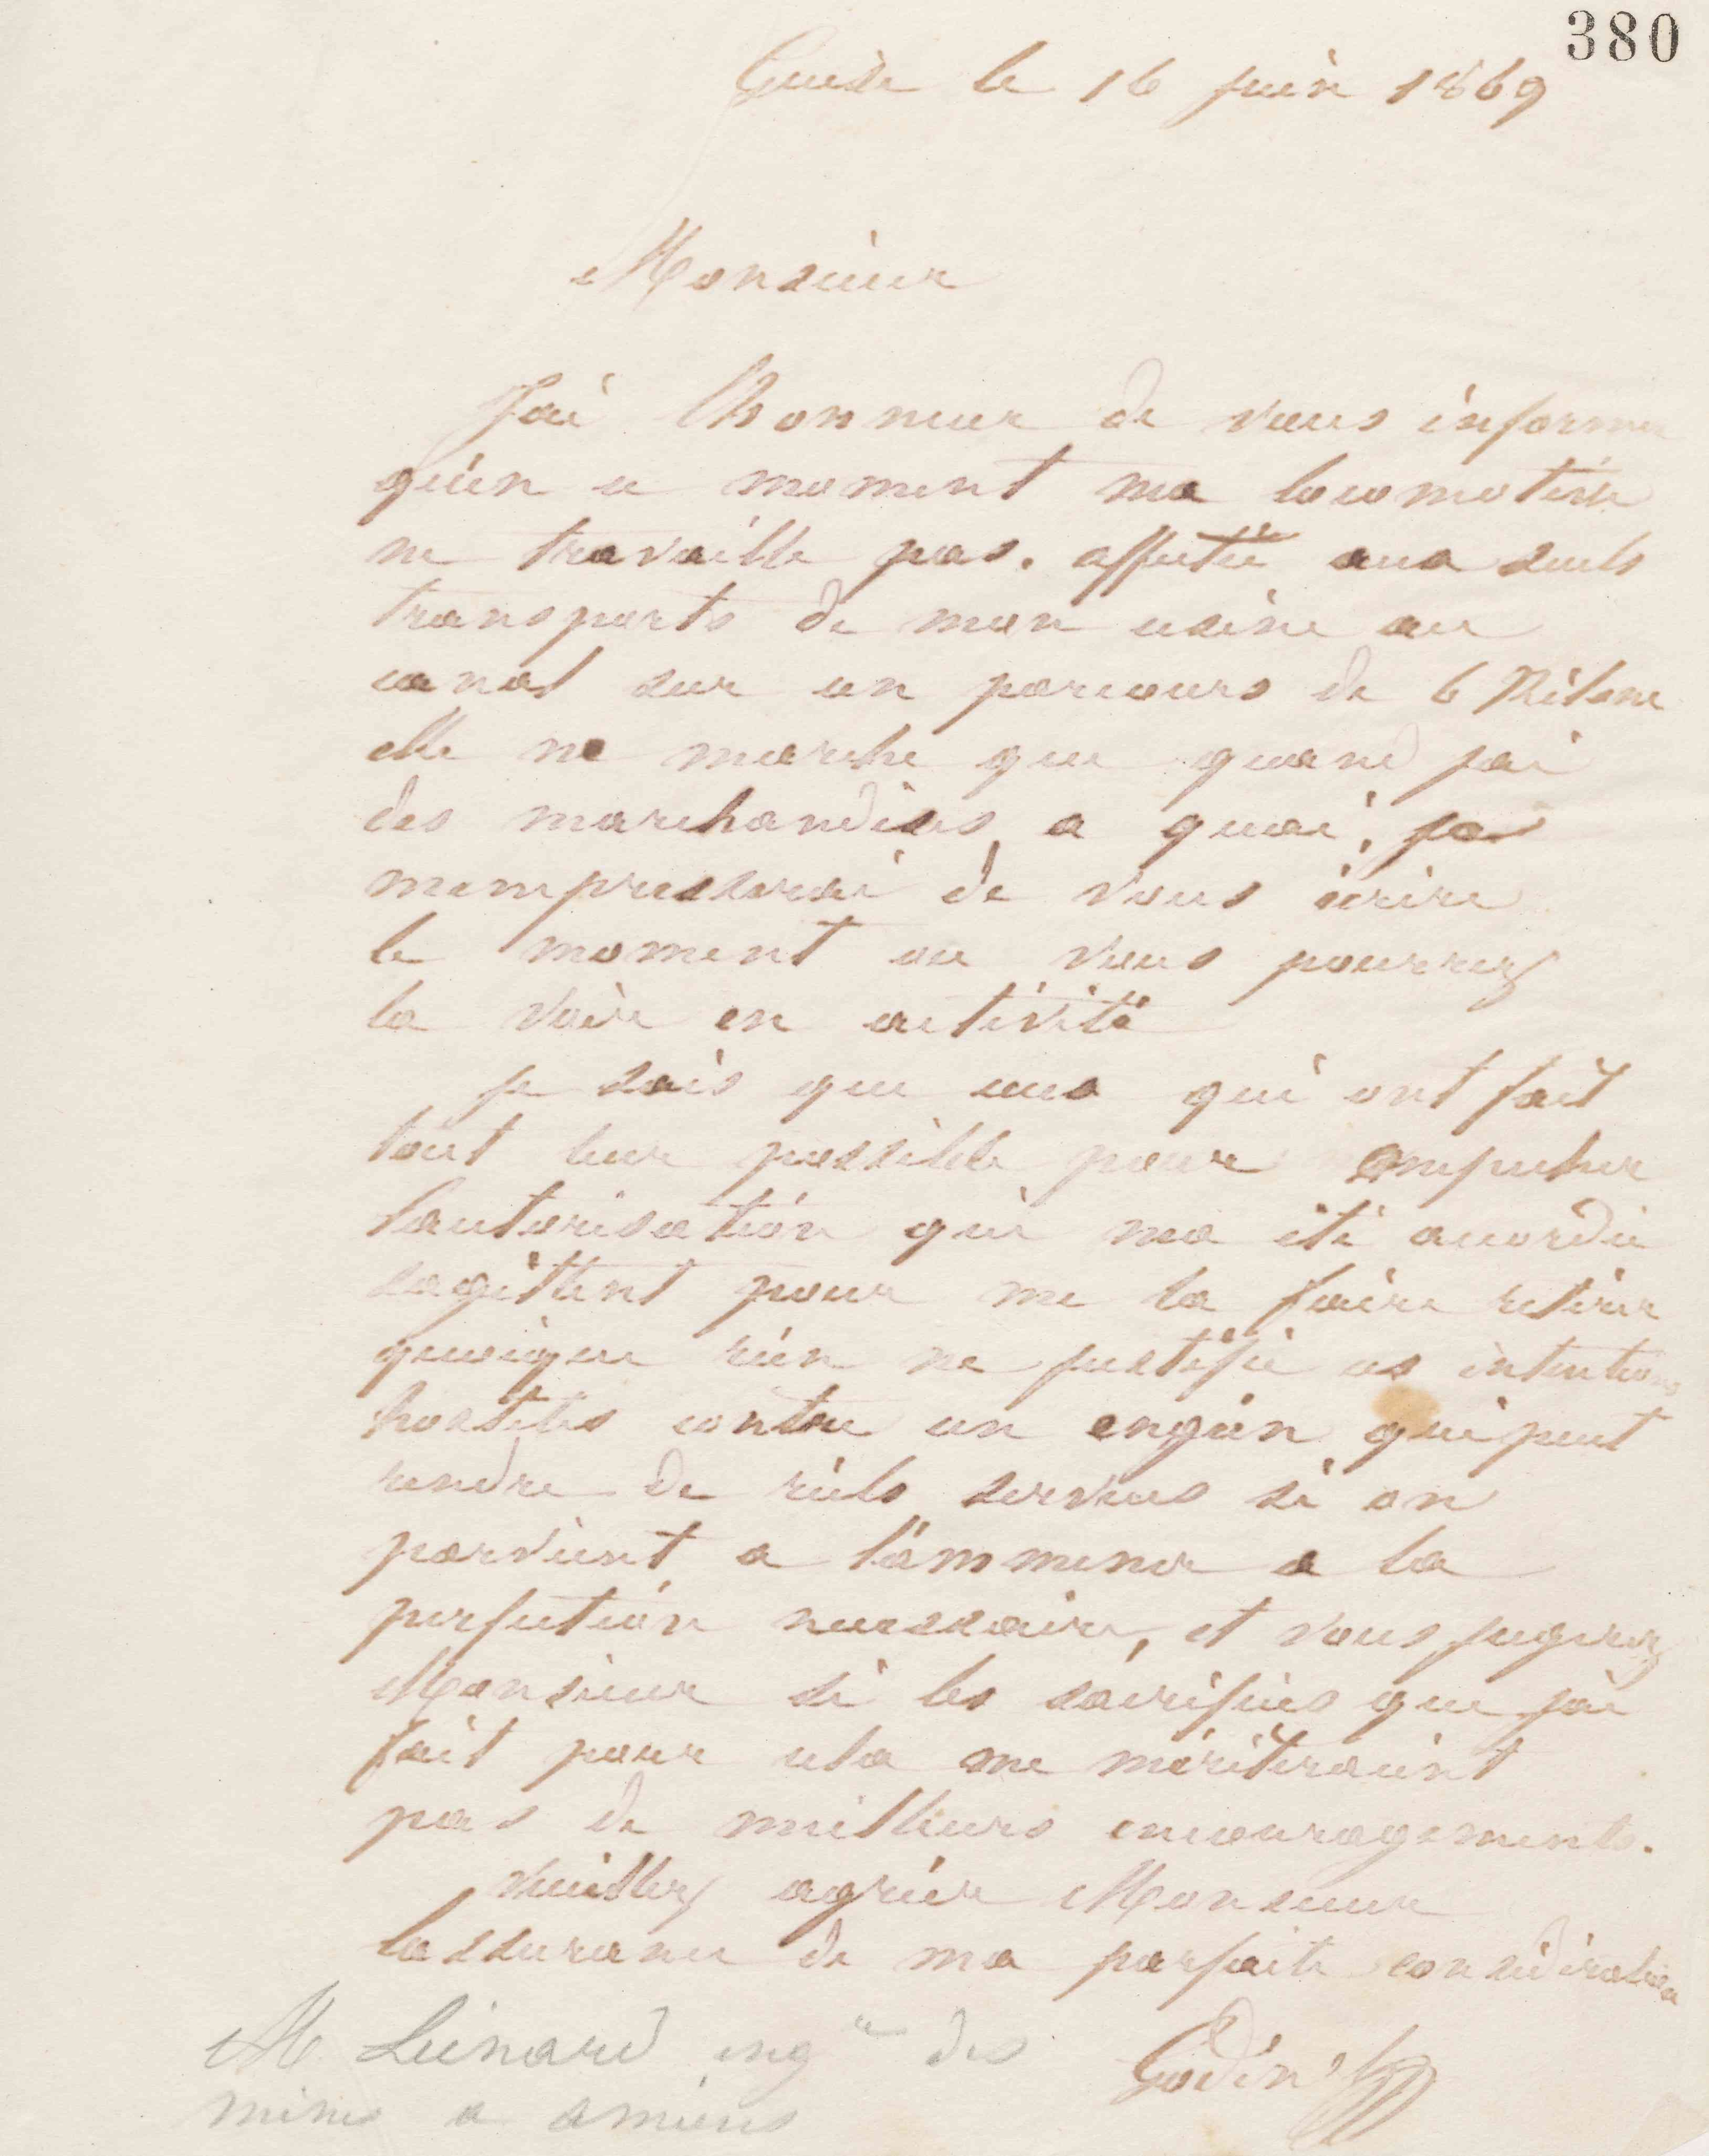 380
Guise le 16 juin 1869
Monsieur
Jai lhonneur de vous informer
qu'en ce moment ma locomotive
ne travaille pas. affectée aux seuls
transports de mon usine au
canal sur un parcours de 6 Kilom
elle ne marche que quand jai
des marchandises a quai, je
mempresserai de vous écrire
le moment ou vous pourrez
la voir en activité
je sais que ceux qui ont fait
tout leur possible pour empecher
lautorisation qui ma été accordée
sagittent pour me la faire retirer
quoique rien ne justifie ces intentions
hostiles contre un engin qui peut
rendre de réels services si on
parvient a l'ammener a la
perfection necessaire, et vous jugerez
Monsieur si les sacrifices que jai
fait pour cela ne mériteraient
pas de meilleurs encouragements.
Veuillez agréer Monsieur
lassurance de ma parfaite considération
Godin
M Leinard ingʳ des
mines a amiens